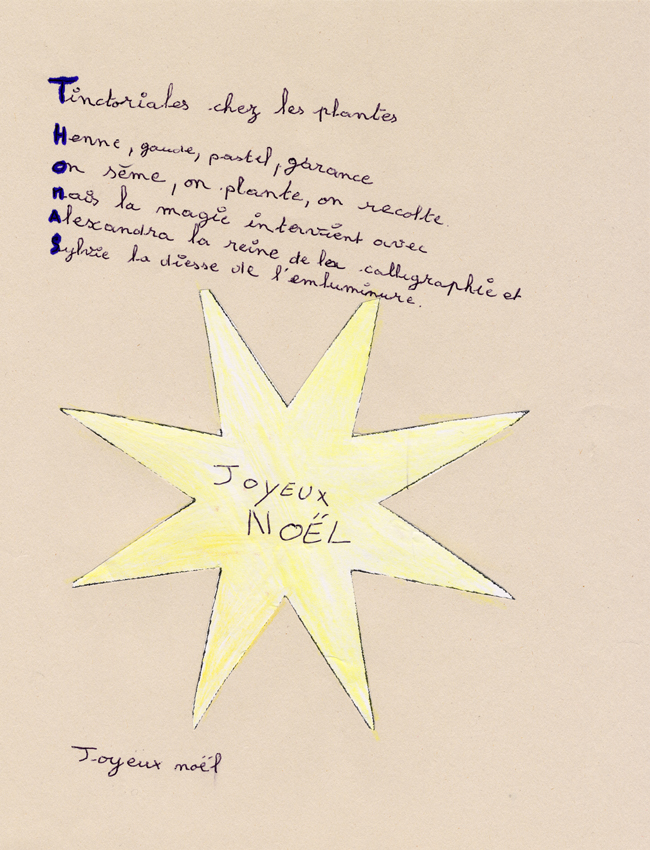 Tinctoriales chez les plantes
Henne, gaude, pastel, garance
On sème, on plante, on recolte.
nais la magie intervient avec
Alexandra la reine de la calligraphie et
Sylvie la diesse de l'enluminure.
JOYEUX
NOËL
Joyeux noël